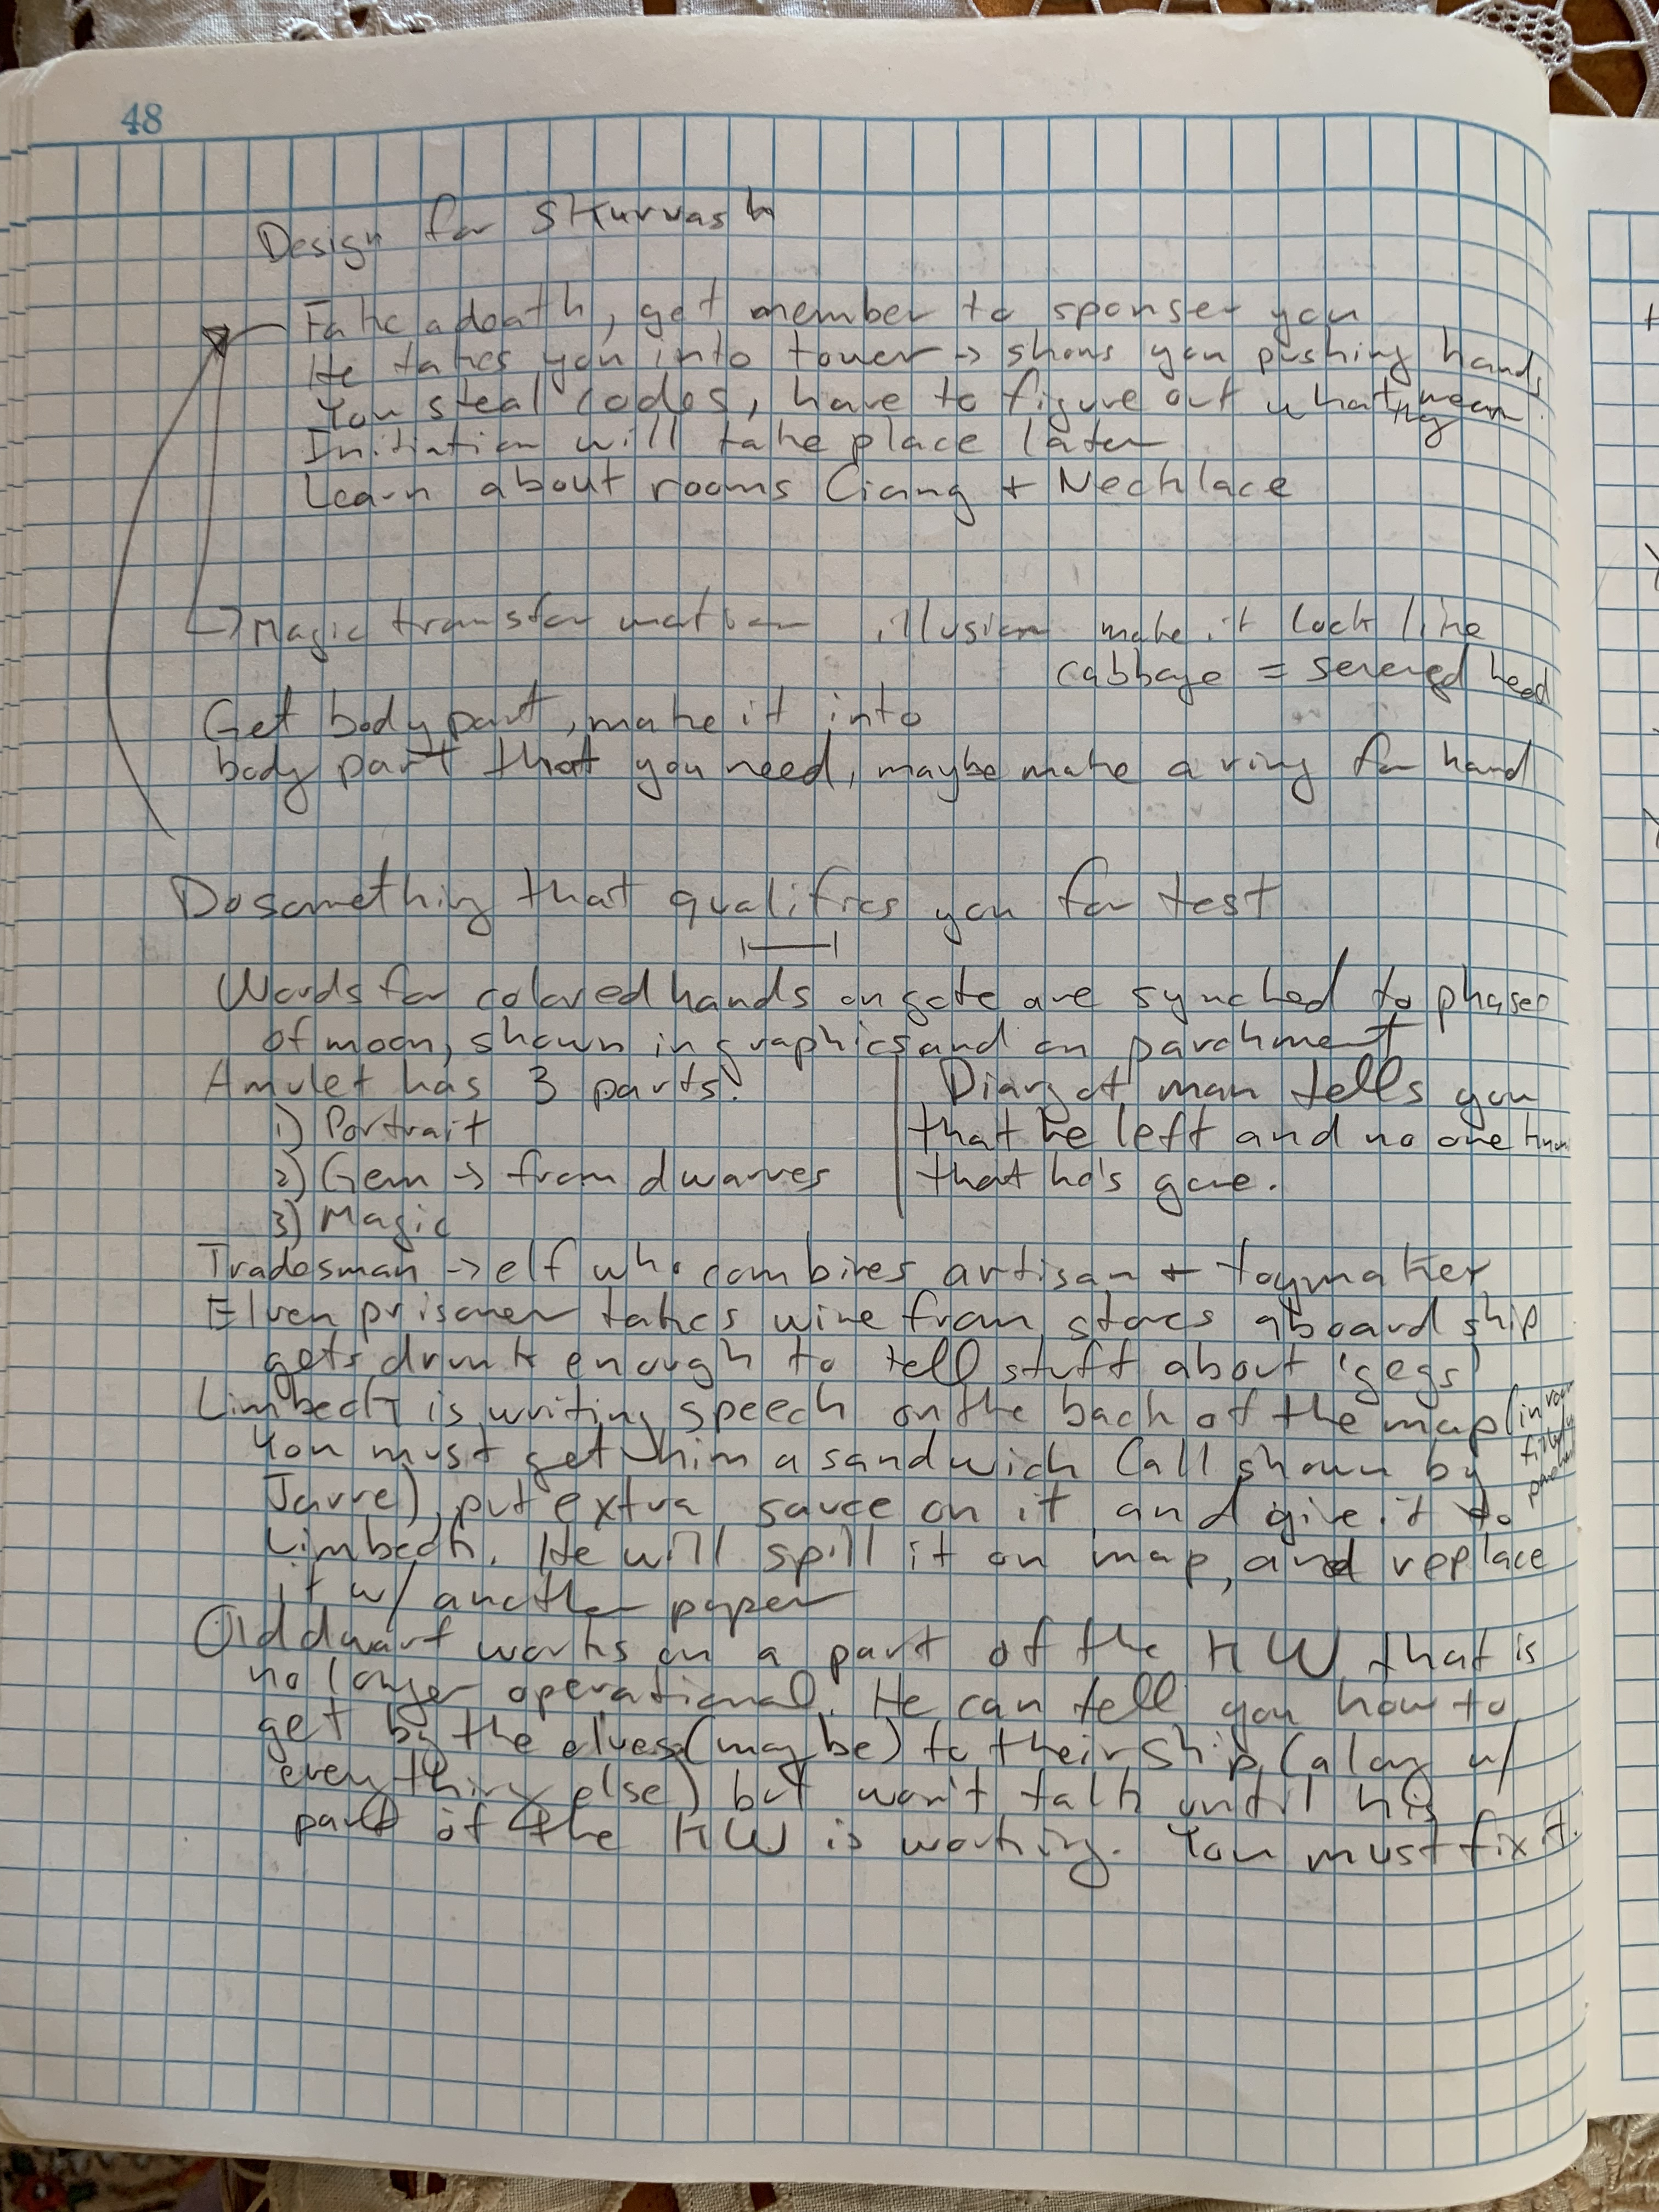 48
Design for Skurvash
Fake a death, get member to sponser you
He takes you into tower → shows you pushing hands
You steal codes, have to figure out what they mean.
Initiation will take place later
Learn about rooms Ciang + Necklace
Magic transformation illusion make it look like
cabbage = severed head
Get body part, make it into
body part that you need, maybe make a ring for hand
Do something that qualifies you for test
Words for colored hands on gate are synched to phases
of moon, shown in graphics and on parchment
Amulet has 3 parts.
1) Portrait
2) Gem → from dwarves
3) Magic
Diary of man tells you
that he left and no one knows
that he's gone.
Tradesman → elf who combines artisan + toymaker
Elven prisoner takes wine from stores aboard ship
gets drunk enough to tell stuff about 'gegs'
Limbeck is writing speech on the back of the map (in room
filled
You must get him a sandwich (all shown by
Jarre), put extra sauce on it and give it to
Limbeck. He will spill it on map, and replace
it w/ another paper
Old dwarf works on a part of the KW that is
no longer operational. He can tell you how to
get by the elves (maybe) to their ship (along w/
everything else) but won't talk until his
part of the KW is working. You must fix it.